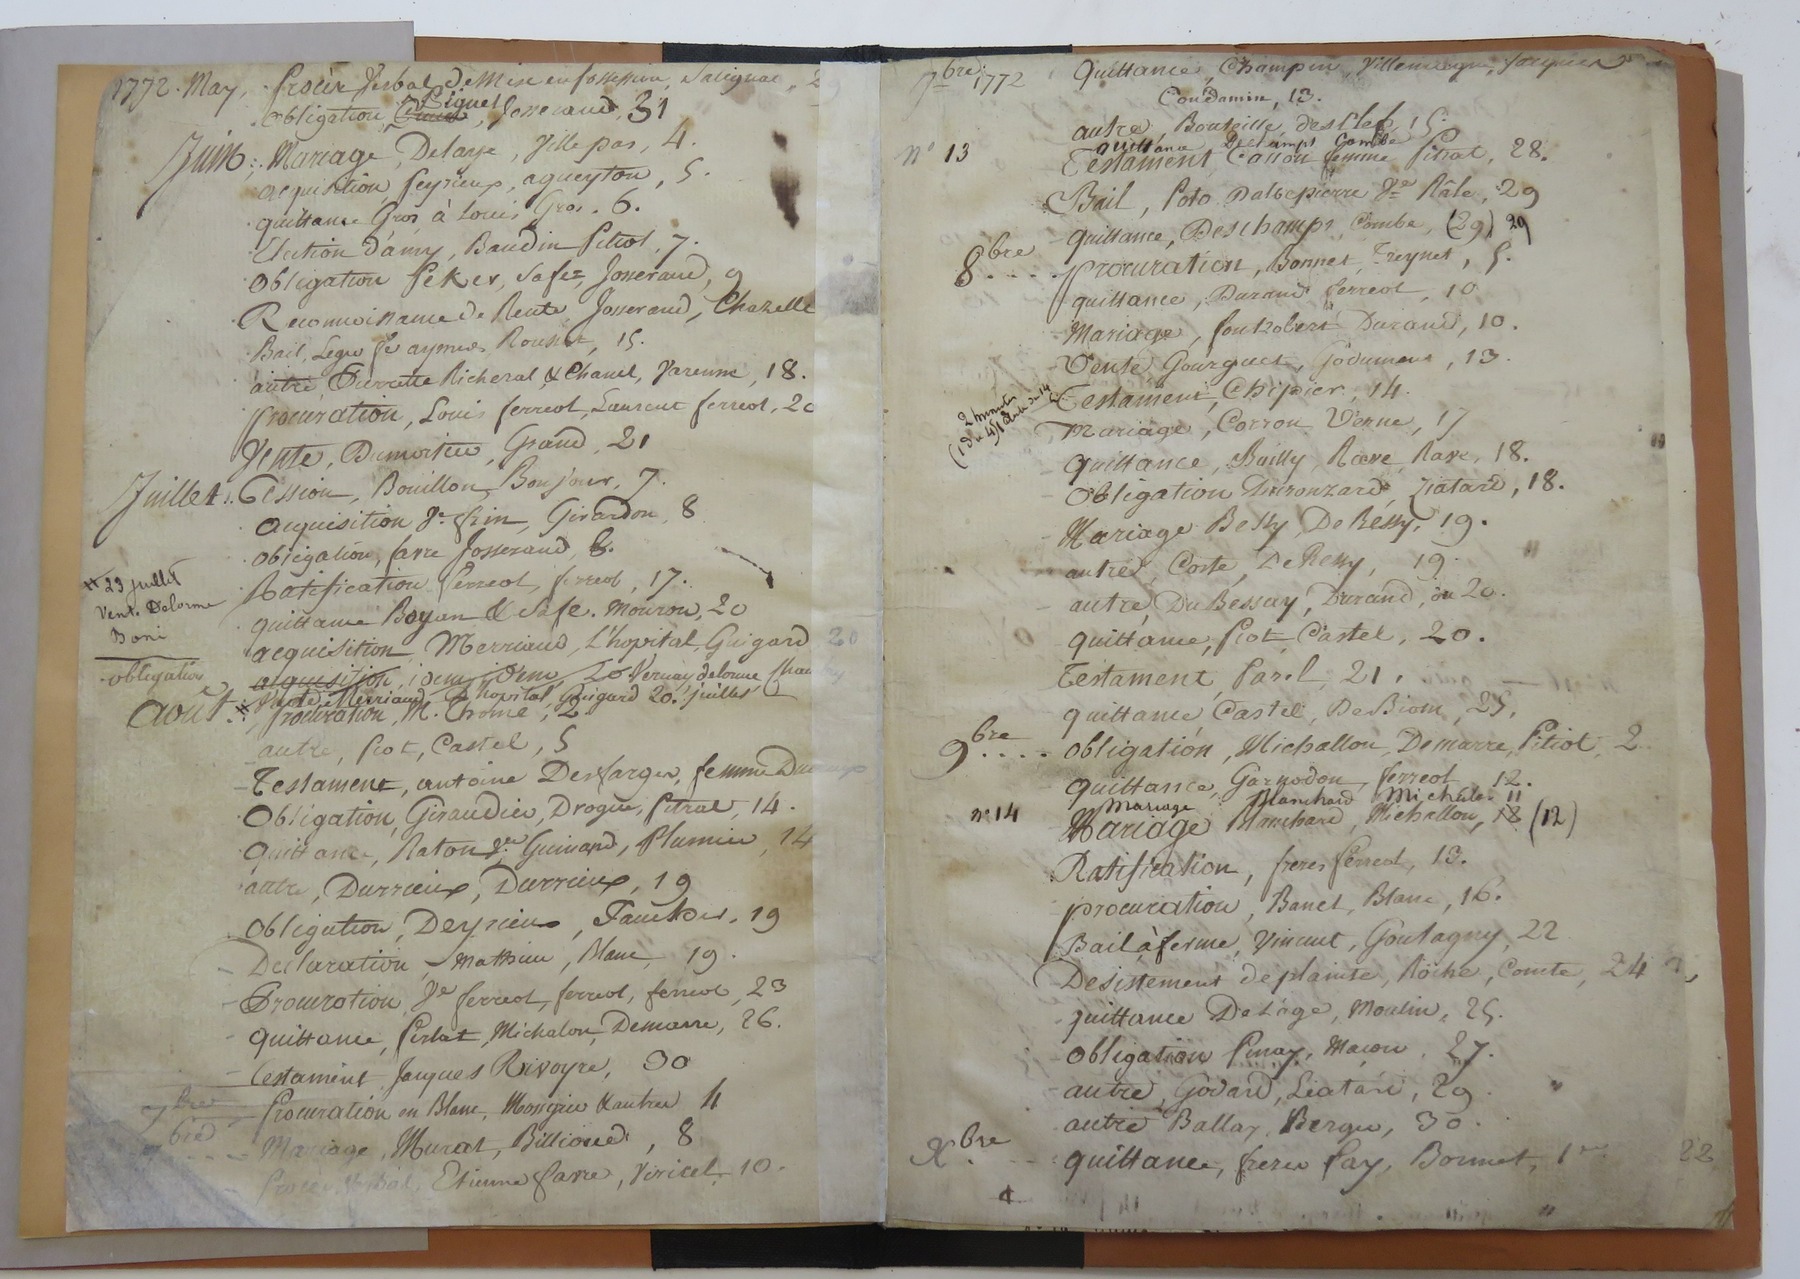 1772. May, Procès Verbal de Mise en possession, Salignac, 2
obligation Piquet, Josserand, 31
Juin, Mariage, Delaye, Villepas, 4.
acquisition Peyrieux, aqueyton, 5.
quittance Gros à Louis Gros. 6.
Election d'amy, Baudin Pitiot, 7.
Obligation Peker, Safe, Josserand, 9
Reconnoissance de Rente Josserand, Chazelle
Bail, Legro fe aymes Rousset, 15.
autre Pierrette Richerat & Chanel, Varenne, 18.
procuration, Louis ferreol, Laurent ferreol, 20
Vente, Dumortier, Grand, 21
Juillet. Cession, Bouillon, Bonjour, 7.
acquisition Ve frin, Girardon, 8
obligation, favre Josserand, 8.
Ratification ferreol, ferreol, 17.
quittance Boyan & Safe. Mouron, 20
acquisition Merriaud, L'hopital, Guigard 20
acquisition, idem, idem, 20 Vernay delorme
Merriaud L'hopital, Guigard 20. juillet
# 23 juillet
Vent. Delorme
Boni
obligation
Août. procuration, M. Thomé, 2.
autre, Piot, Castel, 5
Testament, antoine Desfarges, femme
Obligation, Giraudier, Drogue, Pitrat, 14.
Quittance, Raton Ve Guinard, Plumier, 14
autre, Durrieux, Durrieux, 19
Obligation, Deyrieux, Faucher, 19
Declaration, Mathieu, Blanc, 19.
Procuration, Ve ferreol, ferreol, ferreol, 23
quittance, Michalon, Demarre, 26.
Testament Jacques Rivoyre, 30
7bre Procuration en Blanc, & autres 4
Mariage, Murat, Billioud, 8
Procès Verbal, Etienne favre, Viricel, 10.
7bre 1772 Quittance, Champin, Villemagne, Jacques
Condamin, 13.
autre, Bouteille, 15.
quittance Dechamps Combe
n° 13 Testament, Carron femme Pitrat, 28.
Bail, Poto Dalbepierre Ve Râle, 29
quittance, Deschamps, Combe, (29) 29
8bre procuration, Bonnet, Treynet, 5.
quittance, Durand ferreol, 10
Mariage, Durand, 10.
Vente, Gourguet, 13.
2 minutes
Testament, Chipier, 14.
Mariage, Corron Verne, 17
quittance, Bailly, Rave, Rave, 18.
Obligation Liatard, 18.
Mariage Bessy, De Ressy, 19.
autre, Coste, De Ressy, 19.
autre, Du Bessay, Durand, du 20.
quittance, Piot, Castel, 20.
Testament, Parel, 21.
quittance Castel, De Biom, 25.
9bre obligation, Michallon, Demarre, Pitiot, 2.
quittance, Garnodon, ferreol, 12.
Mariage Blanchard Michalon 11
n° 14 Mariage Blanchard, Michallon, 18 (12)
Ratification, freres ferreol, 13.
procuration, Banet, Blanc, 16.
Bail à ferme, Vincent, Goutagny, 22
Desistement de plainte, Roche, Comte, 24
quittance De L'age, Moulin, 25.
obligation Pinay, Maçon, 27.
autre, Godard, Liatard, 29
autre Ballay, Berger, 30.
Xbre quittance, freres Fay, Bonnet, 1er 22